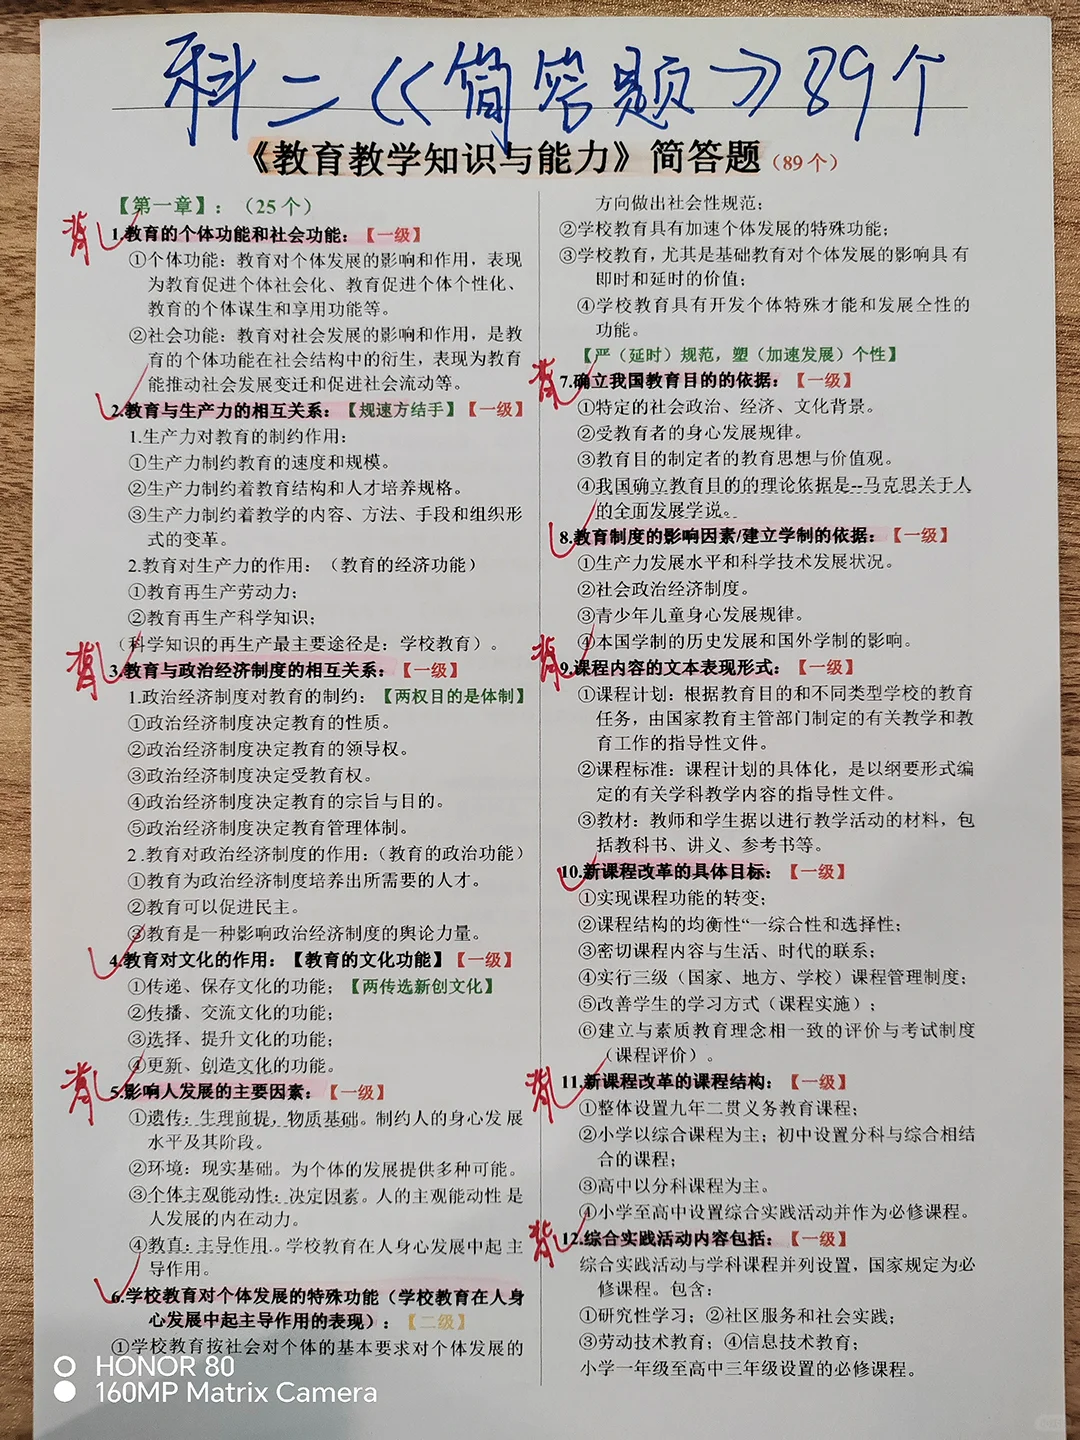 科二《简答题》89个
《教育教学知识与能力》简答题（89个）
【第一章】：（25个）
背
1.教育的个体功能和社会功能：【一级】
①个体功能：教育对个体发展的影响和作用，表现
为教育促进个体社会化、教育促进个体个性化、
教育的个体谋生和享用功能等。
②社会功能：教育对社会发展的影响和作用，是教
育的个体功能在社会结构中的衍生，表现为教育
能推动社会发展变迁和促进社会流动等。
2.教育与生产力的相互关系：【规速方结手】【一级】
1.生产力对教育的制约作用：
①生产力制约教育的速度和规模。
②生产力制约着教育结构和人才培养规格。
③生产力制约着教学的内容、方法、手段和组织形
式的变革。
2.教育对生产力的作用：（教育的经济功能）
①教育再生产劳动力；
②教育再生产科学知识；
（科学知识的再生产最主要途径是：学校教育）。
背
3.教育与政治经济制度的相互关系：【一级】
1.政治经济制度对教育的制约：【两权目的是体制】
①政治经济制度决定教育的性质。
②政治经济制度决定教育的领导权。
③政治经济制度决定受教育权。
④政治经济制度决定教育的宗旨与目的。
⑤政治经济制度决定教育管理体制。
2.教育对政治经济制度的作用：（教育的政治功能）
①教育为政治经济制度培养出所需要的人才。
②教育可以促进民主。
③教育是一种影响政治经济制度的舆论力量。
4.教育对文化的作用：【教育的文化功能】【一级】
①传递、保存文化的功能；【两传选新创文化】
②传播、交流文化的功能；
③选择、提升文化的功能；
④更新、创造文化的功能。
背
5.影响人发展的主要因素：【一级】
①遗传：生理前提，物质基础。制约人的身心发展
水平及其阶段。
②环境：现实基础。为个体的发展提供多种可能。
③个体主观能动性：决定因素。人的主观能动性是
人发展的内在动力。
④教育：主导作用。学校教育在人身心发展中起主
导作用。
6.学校教育对个体发展的特殊功能（学校教育在人身
心发展中起主导作用的表现）：【二级】
①学校教育按社会对个体的基本要求对个体发展的
方向做出社会性规范；
②学校教育具有加速个体发展的特殊功能；
③学校教育，尤其是基础教育对个体发展的影响具有
即时和延时的价值；
④学校教育具有开发个体特殊才能和发展个性的
功能。
【严（延时）规范，塑（加速发展）个性】
背
7.确立我国教育目的的依据：【一级】
①特定的社会政治、经济、文化背景。
②受教育者的身心发展规律。
③教育目的制定者的教育思想与价值观。
④我国确立教育目的的理论依据是--马克思关于人
的全面发展学说。
8.教育制度的影响因素/建立学制的依据：【一级】
①生产力发展水平和科学技术发展状况。
②社会政治经济制度。
③青少年儿童身心发展规律。
④本国学制的历史发展和国外学制的影响。
背
9.课程内容的文本表现形式：【一级】
①课程计划：根据教育目的和不同类型学校的教育
任务，由国家教育主管部门制定的有关教学和教
育工作的指导性文件。
②课程标准：课程计划的具体化，是以纲要形式编
定的有关学科教学内容的指导性文件。
③教材：教师和学生据以进行教学活动的材料，包
括教科书、讲义、参考书等。
10.新课程改革的具体目标：【一级】
①实现课程功能的转变；
②课程结构的均衡性“一综合性和选择性；
③密切课程内容与生活、时代的联系；
④实行三级（国家、地方、学校）课程管理制度；
⑤改善学生的学习方式（课程实施）；
⑥建立与素质教育理念相一致的评价与考试制度
（课程评价）。
背
11.新课程改革的课程结构：【一级】
①整体设置九年二贯义务教育课程；
②小学以综合课程为主；初中设置分科与综合相结
合的课程；
③高中以分科课程为主。
④小学至高中设置综合实践活动并作为必修课程。
背
12.综合实践活动内容包括：【一级】
综合实践活动与学科课程并列设置，国家规定为必
修课程。包含；
①研究性学习；②社区服务和社会实践；
③劳动技术教育；④信息技术教育；
小学一年级至高中三年级设置的必修课程。
HONOR 80
160MP Matrix Camera